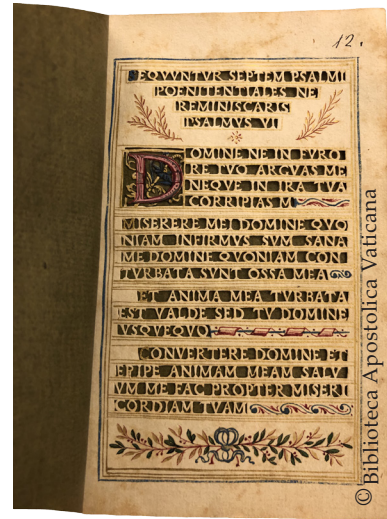 12.
SEQVVNTVR SEPTEM PSALMI
POENITENTIALES NE
REMINISCARIS
PSALMVS VI
DOMINE NE IN FVRO
RE TVO ARGVAS ME
NEQVE IN IRA TVA
CORRIPIAS M
MISERERE MEI DOMINE QVO
NIAM INFIRMVS SVM SANA
ME DOMINE QVONIAM CON
TVRBATA SVNT OSSA MEA
ET ANIMA MEA TVRBATA
EST VALDE SED TV DOMINE
VSQVEQVO
CONVERTERE DOMINE ET
ERIPE ANIMAM MEAM SALV
VM ME FAC PROPTER MISERI
CORDIAM TVAM
© Biblioteca Apostolica Vaticana